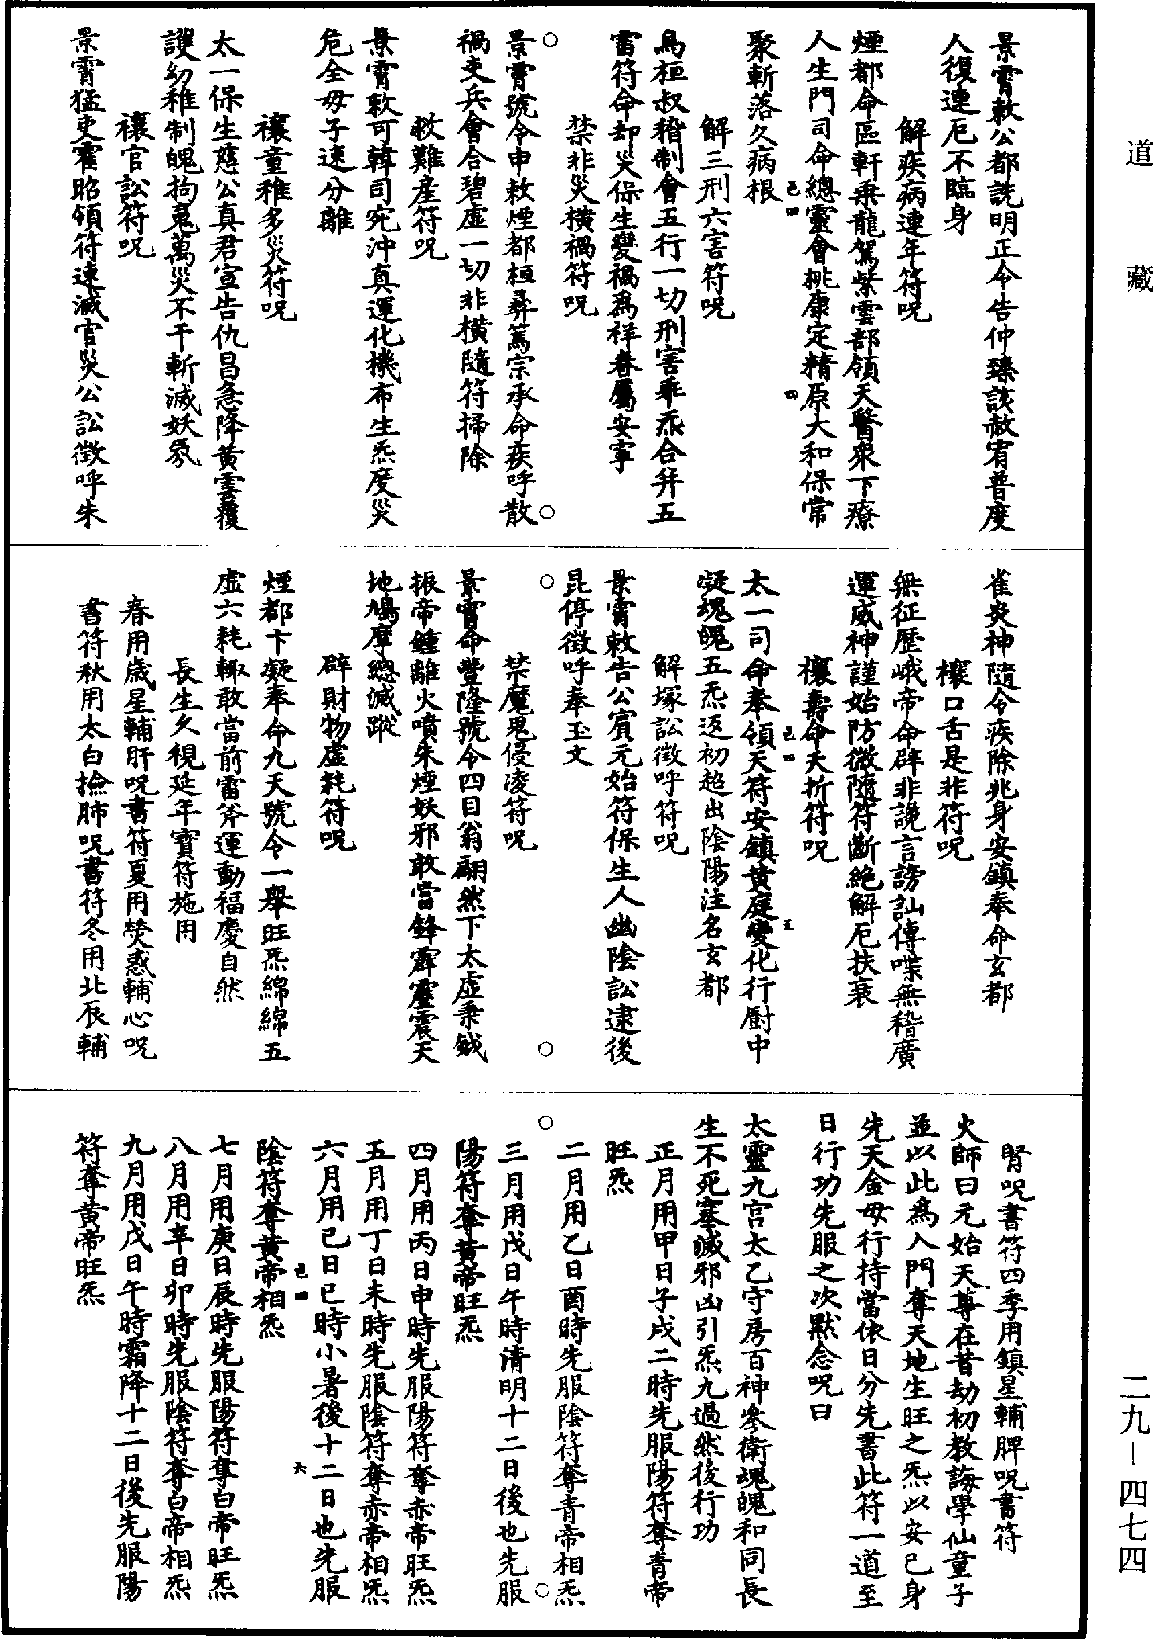 道藏
景霄敕公都説明正令告仲臻該赦宥普度
人復連厄不臨身
解疾病連年符呪
煙都命區軒乘龍駕紫雲部領天醫衆下療
人生門司命總靈會桃康定精原大和保常
聚斬落久病根
解三刑六害符呪
烏桓叔稽制會五行一切刑害乖炁合并五
雷符命却災保生變禍爲祥眷屬安寧
禁非災橫禍符呪
景霄號令申敕煙都桓彞篤宗承命疾呼散
禍吏兵會合碧虛一切非橫隨符掃除
救難産符呪
景霄敕可韓司宛沖真運化機布生炁度災
危全母子速分離
禳童稚多災符呪
太一保生慈公真君宣告仇昌急降黄雲覆
護幼稚制魄拘䰟萬災不干斬滅妖氛
禳官訟符呪
景霄猛吏霍昭領符速滅官災公訟徵呼朱
雀炎神隨令疾除兆身安鎮奉命玄都
禳口舌是非符呪
無征歷峨帝命辟非讒言謗訕傳喋無稽廣
運威神謹始防微隨符斷絶解厄扶衰
禳壽命夭折符呪
太一司命奉領天符安鎮黄庭變化行厨中
凝魂魄五炁返初超出陰陽注名玄都
解塚訟徵呼符呪
景霄敕告公賓元始符保生人幽陰訟逮後
昆停徵呼奉玉文
禁魔鬼侵凌符呪
景霄命豐隆號令四目翁翩然下太虛乘鉞
振帝鍾離火噴朱煙妖邪敢當鋒霹靂震天
地鳩摩總滅蹤
辟財物虛耗符呪
煙都卞凝奉命九天號令一舉旺炁綿綿五
虛六耗輙敢當前雷斧運動福慶自然
長生久視延年寳符施用
春用歲星輔肝呪書符夏用熒惑輔心呪
書符秋用太白撿肺呪書符冬用北辰輔
腎呪書符四季用鎮星輔脾呪書符
火師曰元始天尊在昔劫初教誨學仙童子
並以此爲入門奪天地生旺之炁以安己身
先天金母行持當依日分先書此符一道至
日行功先服之次黙念呪曰
太靈九宫太乙守房百神參衛魂魄和同長
生不死塞滅邪凶引炁九過然後行功
正月用甲日子戌二時先服陽符奪青帝
旺炁
二月用乙日酉時先服陰符奪青帝相炁
三月用戊日午時清明十二日後也先服
陽符奪黄帝旺炁
四月用丙日申時先服陽符奪赤帝旺炁
五月用丁日未時先服陰符奪赤帝相炁
六月用己日巳時小暑後十二日也先服
陰符奪黄帝相炁
七月用庚日辰時先服陽符奪白帝旺炁
八月用辛日卯時先服陰符奪白帝相炁
九月用戊日午時霜降十二日後先服陽
符奪黄帝旺炁
二九—四七四